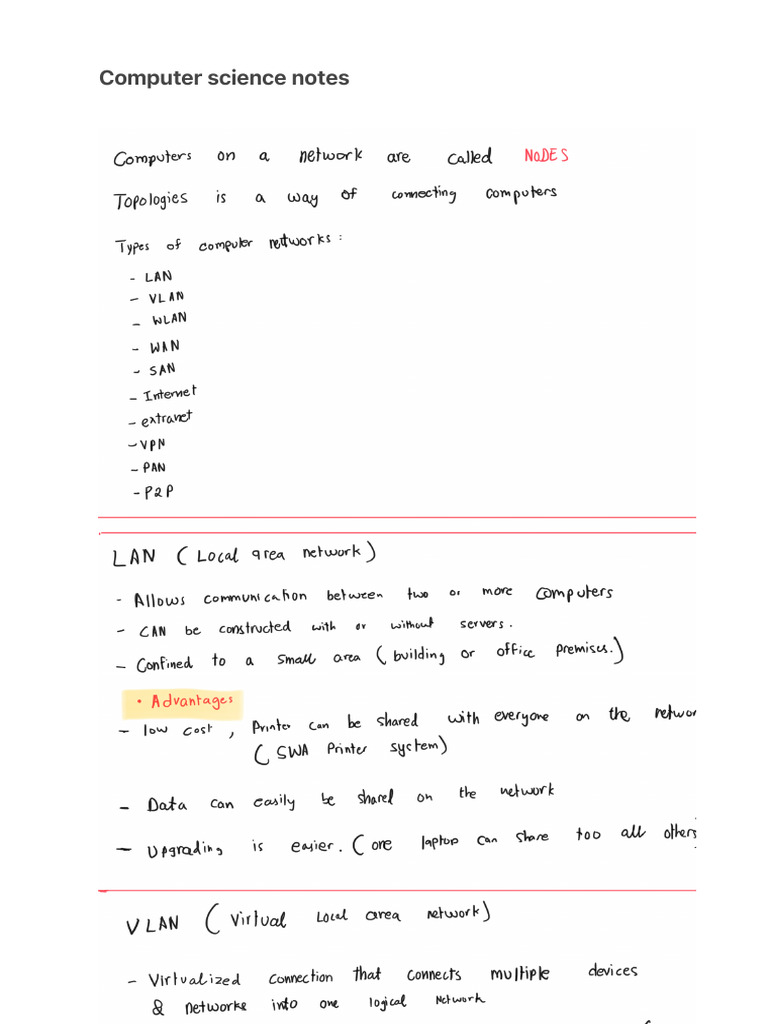 Computer science notes
Computers on a network are called NODES
Topologies is a way of connecting computers
Types of computer networks:
- LAN
- VLAN
- WLAN
- WAN
- SAN
- Internet
- extranet
- VPN
- PAN
- P2P
LAN (Local area network)
- Allows communication between two or more computers
- CAN be constructed with or without servers.
- Confined to a small area (building or office premises.)
• Advantages
- low cost, Printer can be shared with everyone on the networ
(SWA Printer system)
- Data can easily be shared on the network
- Upgrading is easier. (one laptop can share too all others
VLAN (Virtual Local area network)
- Virtualized connection that connects multiple devices
& networks into one logical network